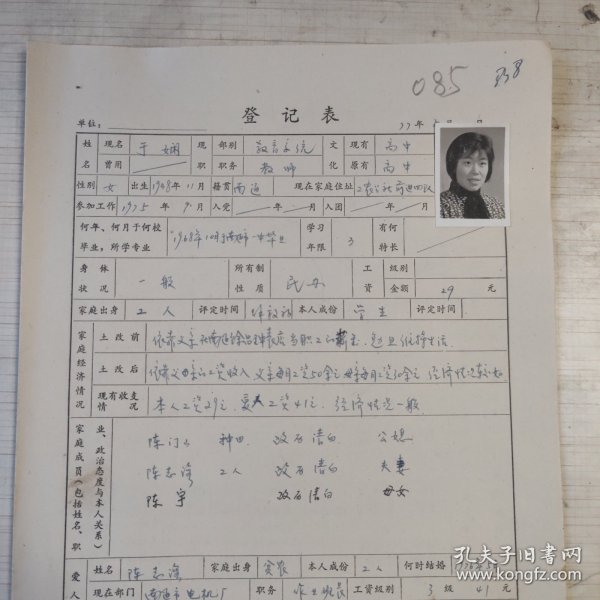 085
登记表
单位： 77年 月 日
姓名 现名 于娴 现职 部别 教育系统 文化 现有 高中
曾用 职务 教师 原有 高中
性别 女 出生 1948年11月 籍贯 南通 现在家庭住址
参加工作 1975年9月 入党 年 月 入团 年 月
何年、何月于何校毕业，所学专业 1968年10月于 一中毕业 学习年限 3 有何特长
身体状况 一般 所有制性质 民办 工资 级别
金额 29 元
家庭出身 工人 评定时间 解放初 本人成份 学生 评定时间
家庭经济情况 土改前 依靠父亲在南通 当职工的 维持生活
土改后 依靠父母亲的工资收入 父亲每月工资50余元 母亲每月工资30余元 经济情况
现有收支情况 本人工资29元 爱人工资41元 经济情况一般
家庭成员（包括姓名、职业、政治态度与本人关系）
陈 种田 政历清白 公媳
陈志 工人 政历清白 夫妻
陈宇 政历清白 母女
爱人 姓名 陈志 家庭出身 贫农 本人成份 工人 何时结婚
现在部门 南通市电机厂 职务 工资级别 3级 41元
孔夫子旧书网
www.kongfz.com